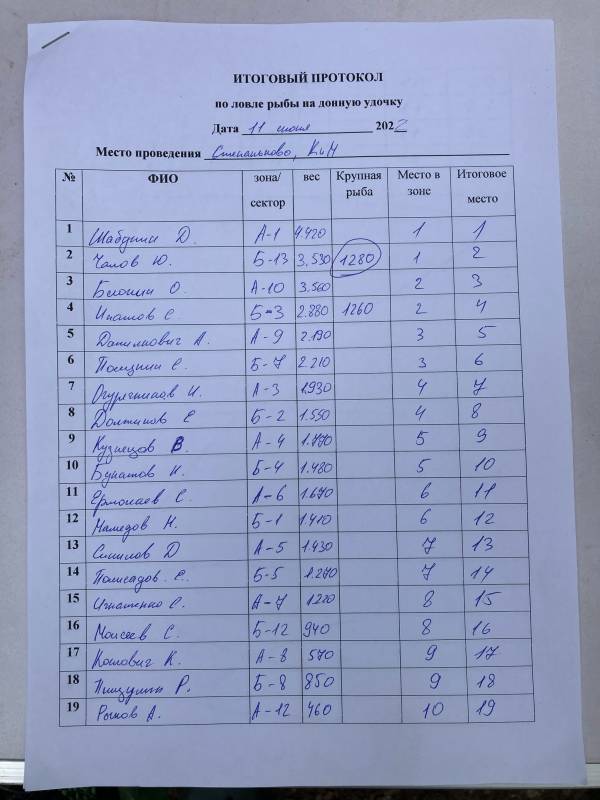 ИТОГОВЫЙ ПРОТОКОЛ
по ловле рыбы на донную удочку
Дата 11 июня 2022
Место проведения Степаньково, КиМ
№ ФИО зона/ сектор вес Крупная рыба Место в зоне Итоговое место
1 Шабунин Д. А-1 4.420 1 1
2 Чалов Ю. Б-13 3.530 1280 1 2
3 Белонин О. А-10 3.560 2 3
4 Ипатов С. Б-3 2.880 1260 2 4
5 Данилкович А. А-9 2.190 3 5
6 С. Б-7 2.210 3 6
7 И. А-3 1.930 4 7
8 С Б-2 1.550 4 8
9 Кузнецов В. А-4 1.770 5 9
10 Булатов Н. Б-4 1.480 5 10
11 Ермолаев С. А-6 1.670 6 11
12 Мамедов Н. Б-1 1.410 6 12
13 Синилов Д А-5 1.430 7 13
14 Полисадов С. Б-5 1.270 7 14
15 Игнатенко С. А-7 1220 8 15
16 Моисеев С. Б-12 940 8 16
17 Козлович К. А-8 570 9 17
18 Пищулин Р. Б-8 850 9 18
19 Рыков А. А-12 460 10 19